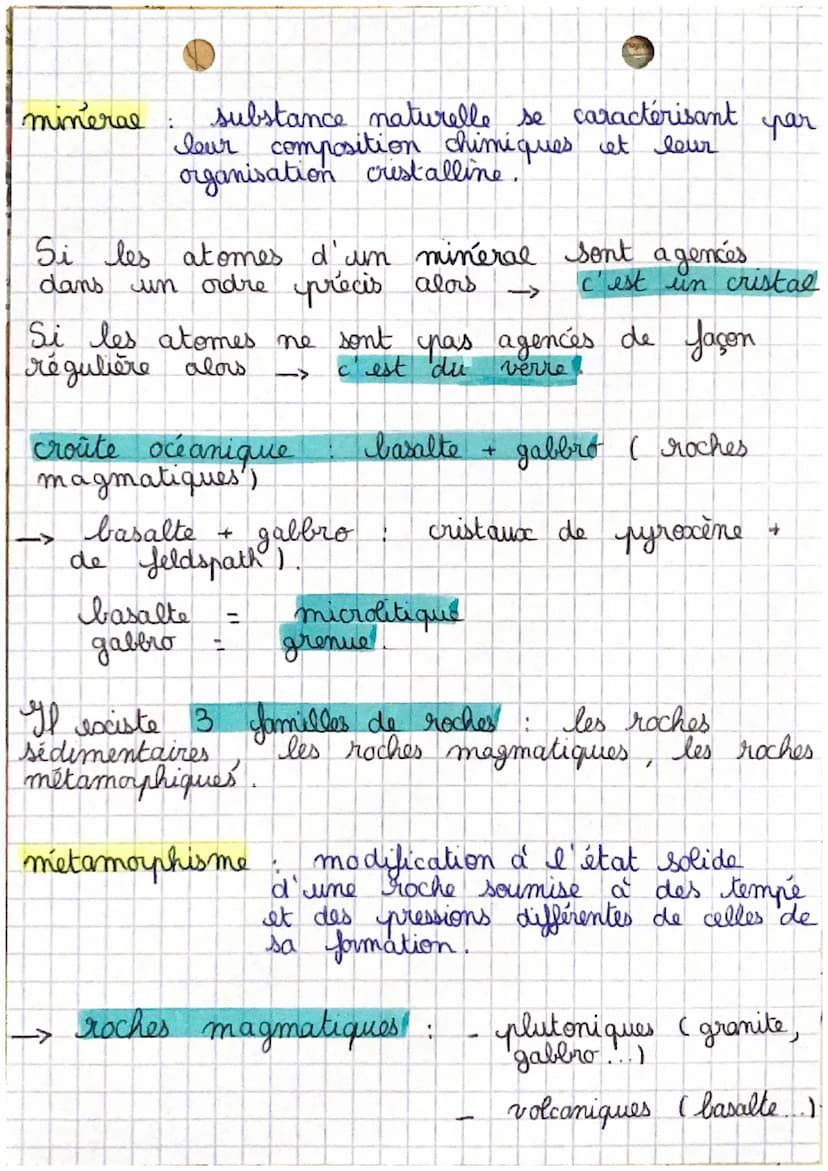 minéral : substance naturelle se caractérisant par
leur composition chimiques et leur
organisation cristalline.
Si les atomes d'un minéral sont agencés
dans un ordre précis alors → c'est un cristal
Si les atomes ne sont pas agencés de façon
régulière alors → c'est du verre.
croûte océanique : basalte + gabbro ( roches
magmatiques)
→ basalte + gabbro : cristaux de pyroxène +
de feldspath ).
basalte = microlitique
gabbro = grenue.
Il existe 3 familles de roches : les roches
sédimentaires, les roches magmatiques, les roches
métamorphiques.
métamorphisme : modification à l'état solide
d'une roche soumise à des tempé
et des pressions différentes de celles de
sa formation.
→ roches magmatiques : - plutoniques (granite,
gabbro...)
- volcaniques (basalte...)